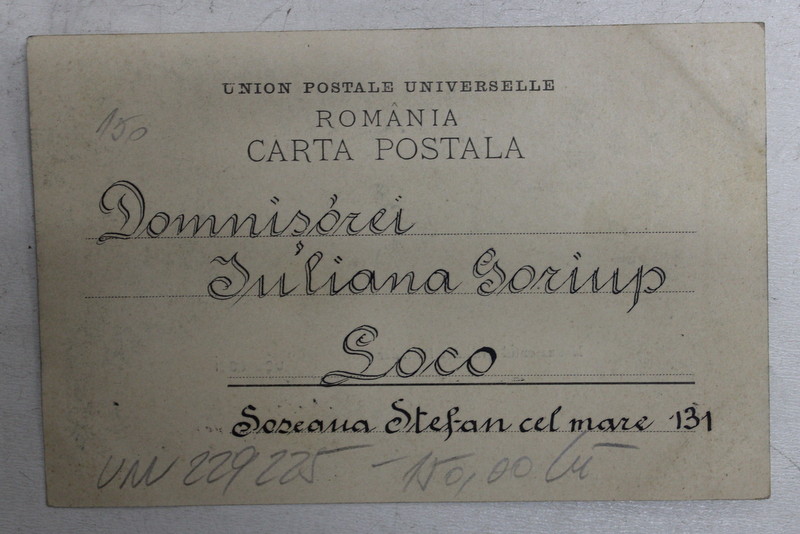 UNION POSTALE UNIVERSELLE
ROMÂNIA
CARTA POSTALA
150
Domnisórei
Iuliana Goriup
Loco
Soseaua Stefan cel mare 131
229225 - 150,00